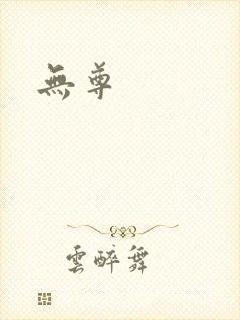 無尊
雲醉舞